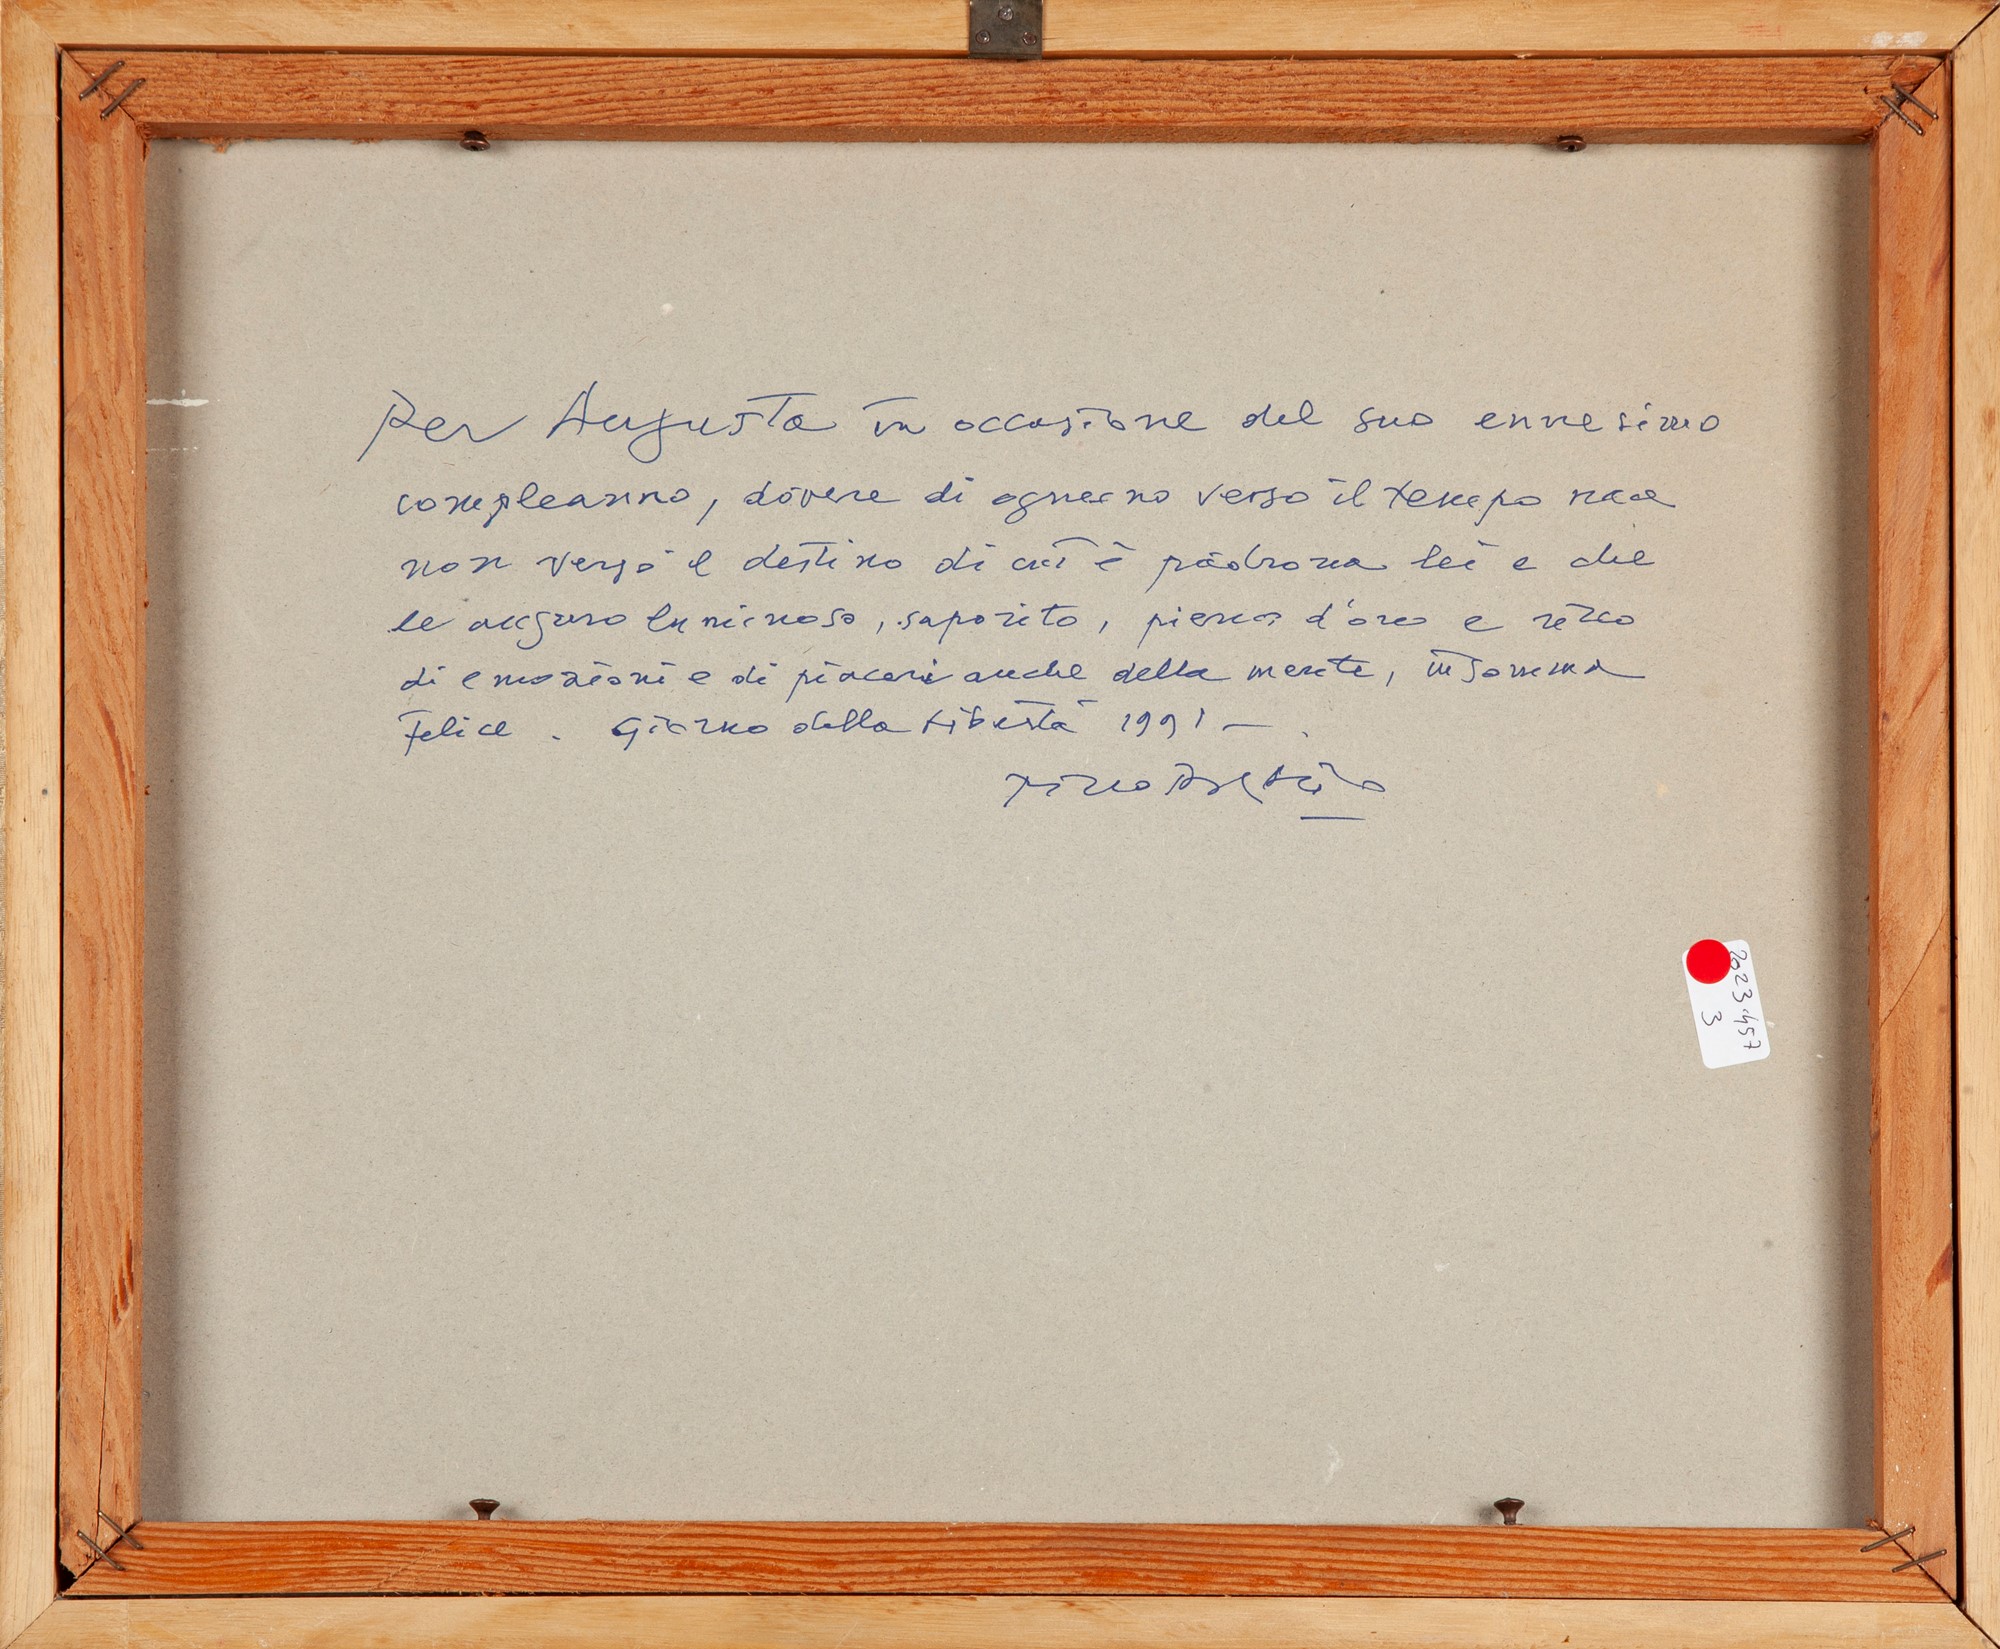 Per Augusta in occasione del suo ennesimo
compleanno, dovere di ognuno verso il tempo ma
non verso il destino di cui è padrona lei e che
le auguro luminoso, saporito, pieno d'oro e ricco
di emozioni e di piaceri anche della mente, insomma
felice. Giorno della Libertà 1991 -
2023.457
3